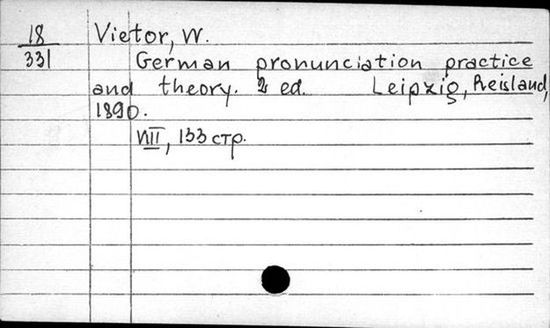 18
331
Vietor, W.
German pronunciation practice
and theory. 2 ed. Leipzig, Reisland,
1890.
VIII, 133 стр.